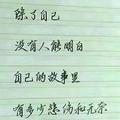 除了自己
没有人能明白
自己的故事里
有多少悲伤和无奈